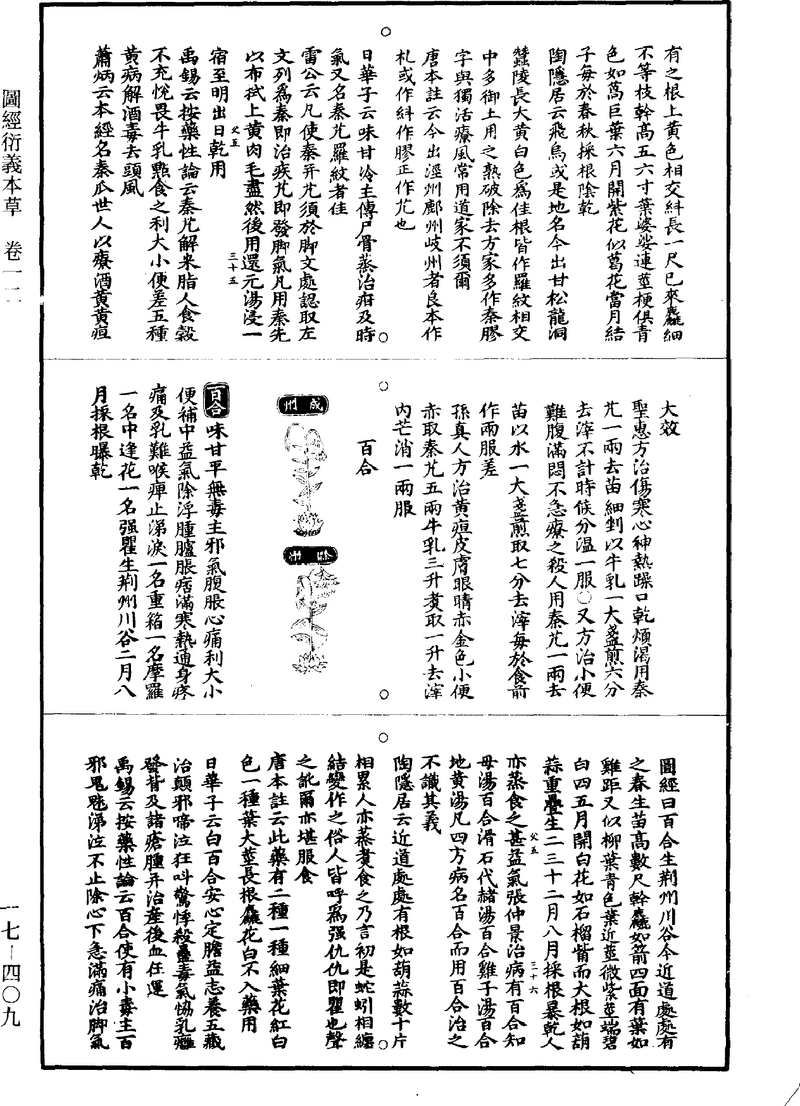 圖經衍義本草　卷一二
有之根上黄色相交糾長一尺已來麤細
不等枝幹高五六寸葉婆娑連莖梗俱青
色如萵巨葉六月開紫花似葛花當月結
子每於春秋採根陰乾
陶隱居云飛烏或是地名今出甘松龍洞
蠶陵長大黄白色爲佳根皆作羅紋相交
中多銜土用之熟破除去方家多作秦膠
字與獨活療風常用道家不須爾
唐本註云今出涇州鄜州岐州者良本作
札或作糾作膠正作艽也
日華子云味甘冷主傳尸骨蒸治疳及時
氣又名秦艽羅紋者佳
雷公云凡使秦幷艽須於脚文處認取左
文列爲秦即治疾艽即發脚氣凡用秦先
以布拭上黄肉毛盡然後用還元湯浸一
父五
三十五
宿至明出日乾用
禹錫云按藥性論云秦艽解米脂人食穀
不充悅畏牛乳點食之利大小便差五種
黄病解酒毒去頭風
蕭炳云本經名秦瓜世人以療酒黄黄疸
大效
聖惠方治傷寒心神熱躁口乾煩渴用秦
艽一兩去苗細剉以牛乳一大盞煎六分
去滓不計時候分溫一服○又方治小便
難腹滿悶不急療之殺人用秦艽一兩去
苗以水一大盞煎取七分去滓每於食前
作兩服差
孫真人方治黄疸皮膚眼睛亦金色小便
亦取秦艽五兩牛乳三升煮取一升去滓
內芒消一兩服
百合
成州
百合味甘平無毒主邪氣腹脹心痛利大小
便補中益氣除浮腫臚脹痞滿寒熱通身疼
痛及乳難喉痺止涕淚一名重箱一名摩羅
一名中逢花一名强瞿生荆州川谷二月八
月採根曝乾
圖經曰百合生荆州川谷今近道處處有
之春生苗高數尺幹麤如箭四面有葉如
雞距又似柳葉青色葉近莖微紫莖端碧
白四五月開白花如石榴觜而大根如葫
蒜重疊生二三十二月八月採根暴乾人
父五
三十六
亦蒸食之甚益氣張仲景治病有百合知
母湯百合滑石代赭湯百合雞子湯百合
地黄湯凡四方病名百合而用百合治之
不識其義
陶隱居云近道處處有根如葫蒜數十片
相累人亦蒸煮食之乃言初是蛇蚓相纏
結變作之俗人皆呼爲强仇仇即瞿也聲
之訛爾亦堪服食
唐本註云此藥有二種一種細葉花紅白
色一種葉大莖長根麤花白不入藥用
日華子云白百合安心定膽益志養五藏
治顛邪啼泣狂叫驚悸殺蠱毒氣㥘乳癰
發背及諸瘡腫幷治產後血狂運
禹錫云按藥性論云百合使有小毒主百
邪鬼魅涕泣不止除心下急滿痛治脚氣
一七—四〇九